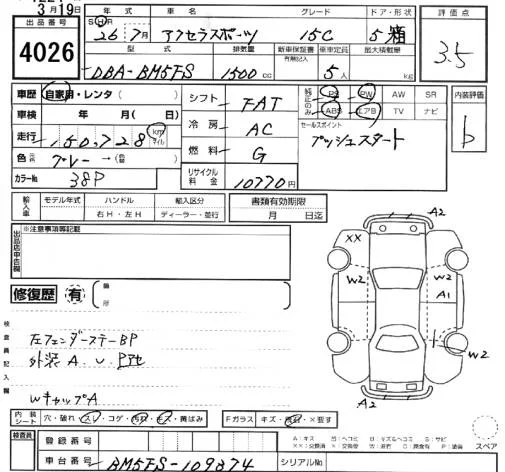 3月19日
出品番号
4026
年式 車名 グレード ドア・形状
26年7月 アクセラスポーツ 15C 5 箱
型式 排気量 新車保証書 有無記入 乗車定員 最大積載量
DBA-BM5FS 1500cc 5人 kg
評価点
3.5
車歴 自家用・レンタ( )
車検 年 月( 日)
走行 150,728 km マイル
色 元色 グレー →(色替 )
カラーNo 38P
シフト FAT
冷房 AC
燃料 G
リサイクル料金 10770円
純正のみ PS PW AW SR
ABS エアB TV ナビ
セールスポイント
プッシュスタート
内装評価
b
輸入車 モデル年式 ハンドル 輸入区分
右H・左H ディーラー・並行
書類有効期限
月 日迄
出品店申告欄
※注意事項等記載
修復歴 有 箇所
検査員記入欄
左フェンダーステーBP
外装 A U P他
WキャップA
A2
XX
W2
W2
A1
W2
A2
内装シート 穴・破れ・スレ・コゲ・汚れ・黄ばみ
Fガラス キズ・飛石・×要す
検査員
登録番号
車台番号 BM5FS-109874
シリアルNo
A:キズ
スペア